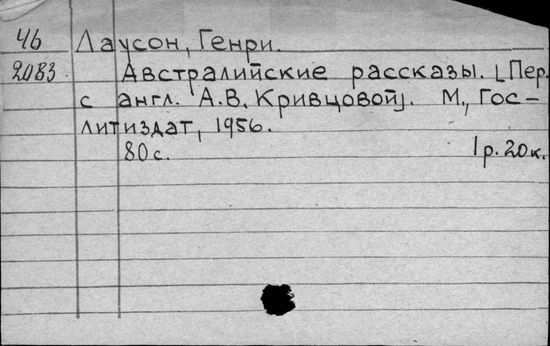 46 Лаусон, Генри.
2083 Австралийские рассказы. [Пер.
с англ. А.В. Кривцовой]. М., Гос-
литиздат, 1956.
80 с. 1 р. 20 к.